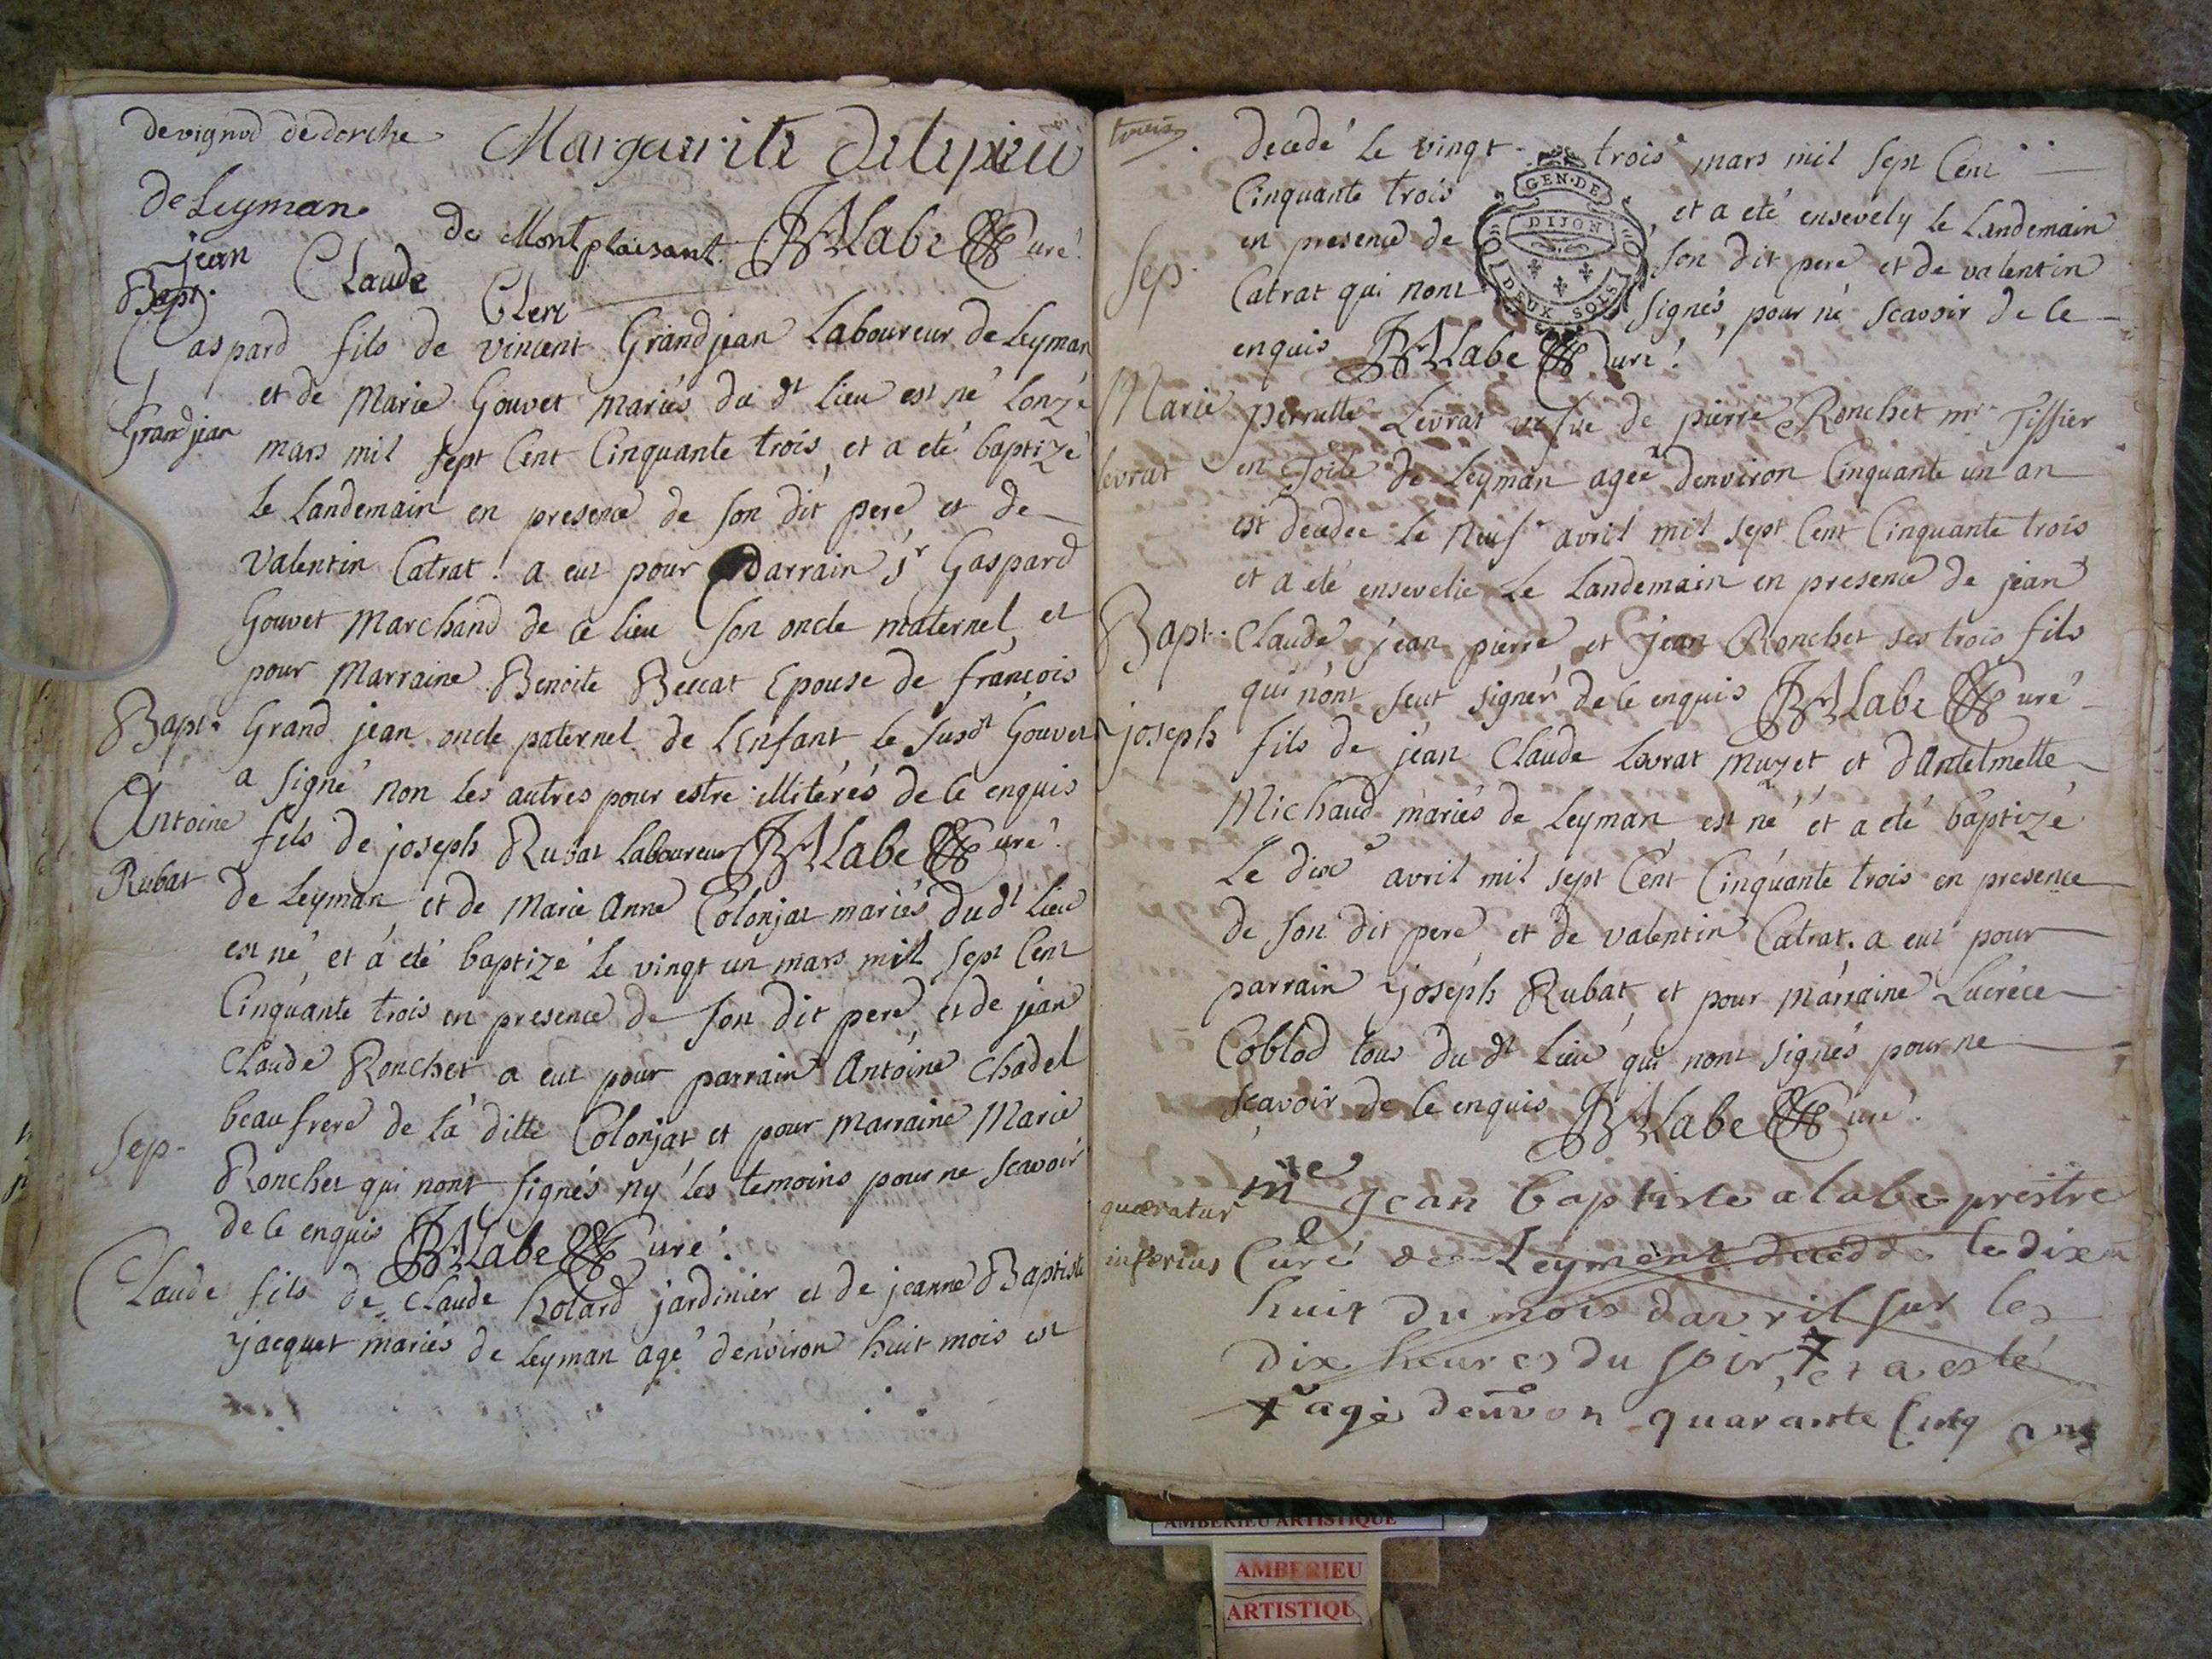 devignod dedorche Marguerite Delipieu
deLeyman
de Montplaisant JBALabe Curé.
jean Claude Clerc
Bapt.
Gaspard fils de vincent Grandjean Laboureur de Leyman
et de Marie Gouvet mariés du dt lieu est né lonzé
Grandjean
mars mil sept Cent Cinquante trois, et a eté baptizé
le Landemain en presence de son dit pere et de
Valentin Catrat. a eut pour parrain sr Gaspard
Gouvet Marchand de ce lieu son oncle maternel, et
pour Marraine Benoite Beccat Epouse de françois
Bapt. Grand jean oncle paternel de L'Enfant le susdt Gouvet
a signé non les autres pour estre illitérés de ce enquis
Antoine fils de joseph Rubat Laboureur JBALabe Curé.
Rubat de Leyman, et de Marie Anne Colonjat mariés dudt Lieu
est né, et a eté baptizé le vingt un mars mil sept Cent
Cinquante trois en presence de son dit pere, et de jean
Claude Ronchet a eut pour parrain Antoine Chadel
beaufrere de la ditte Colonjat et pour marraine Marie
Sep. Ronchet qui nont signés ny les temoins pour ne scavoir
de ce enquis JBALabe Curé.
Claude fils de Claude holard jardinier et de jeanne Baptiste
Jacquet mariés de Leyman agé d'environ huit mois est
decedé le vingt trois mars mil sept Cent
Cinquante trois, et a eté ensevely le Landemain
Sep. en presence de son dit pere et de valentin
Catrat qui nont signés, pour ne scavoir de ce
enquis JBALabe Curé.
GEN·DE
DIJON
DEUX SOLS
Marie pernette Levrat veſve de pierre Ronchet mr Tissier
levrat en Toile de Leyman agée d'environ Cinquante un an
est decedee le neuf avril mil sept Cent Cinquante trois
et a eté ensevelie Le Landemain en presence de jean
Bapt. Claude, jean pierre, et jean Ronchet ses trois fils
qui n'ont seut signer de ce enquis JBALabe Curé
joseph fils de jean Claude Levrat muzet et d'Antelmette
Michaud mariés de Leyman, est né et a eté baptizé
Le dix avril mil sept Cent Cinquante trois en presence
de son dit pere, et de valentin Catrat. a eut pour
parrain joseph Rubat, et pour marraine Lucrece
Coblod tous du dt Lieu qui nont signés pour ne
scavoir de ce enquis JBALabe Curé.
quæratur mre jean baptiste alabe prestre
inferius Curé de Leyment decedde le dix
huit du mois davril sur les
dix heures du soir, et a esté
agé denvon quarante Cinq ans
AMBERIEU ARTISTIQUE
AMBERIEU
ARTISTIQU